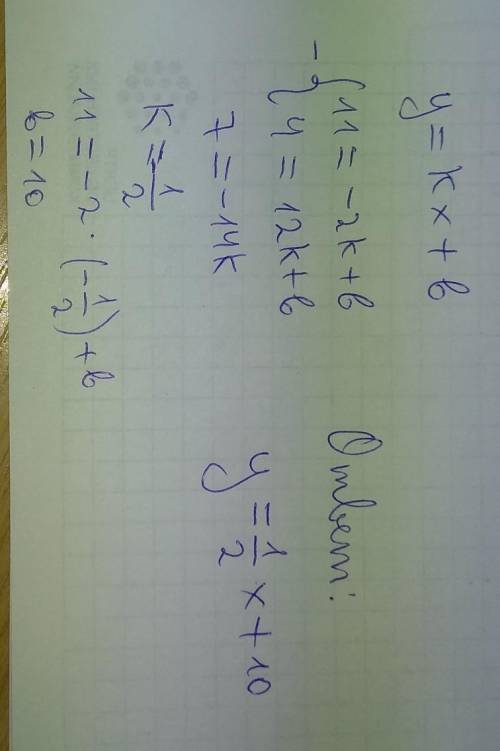 y = kx + b
- { 11 = -2k + b
{ 4 = 12k + b
7 = -14k
k = -1/2
11 = -2 · (-1/2) + b
b = 10
Ответ:
y = 1/2 x + 10